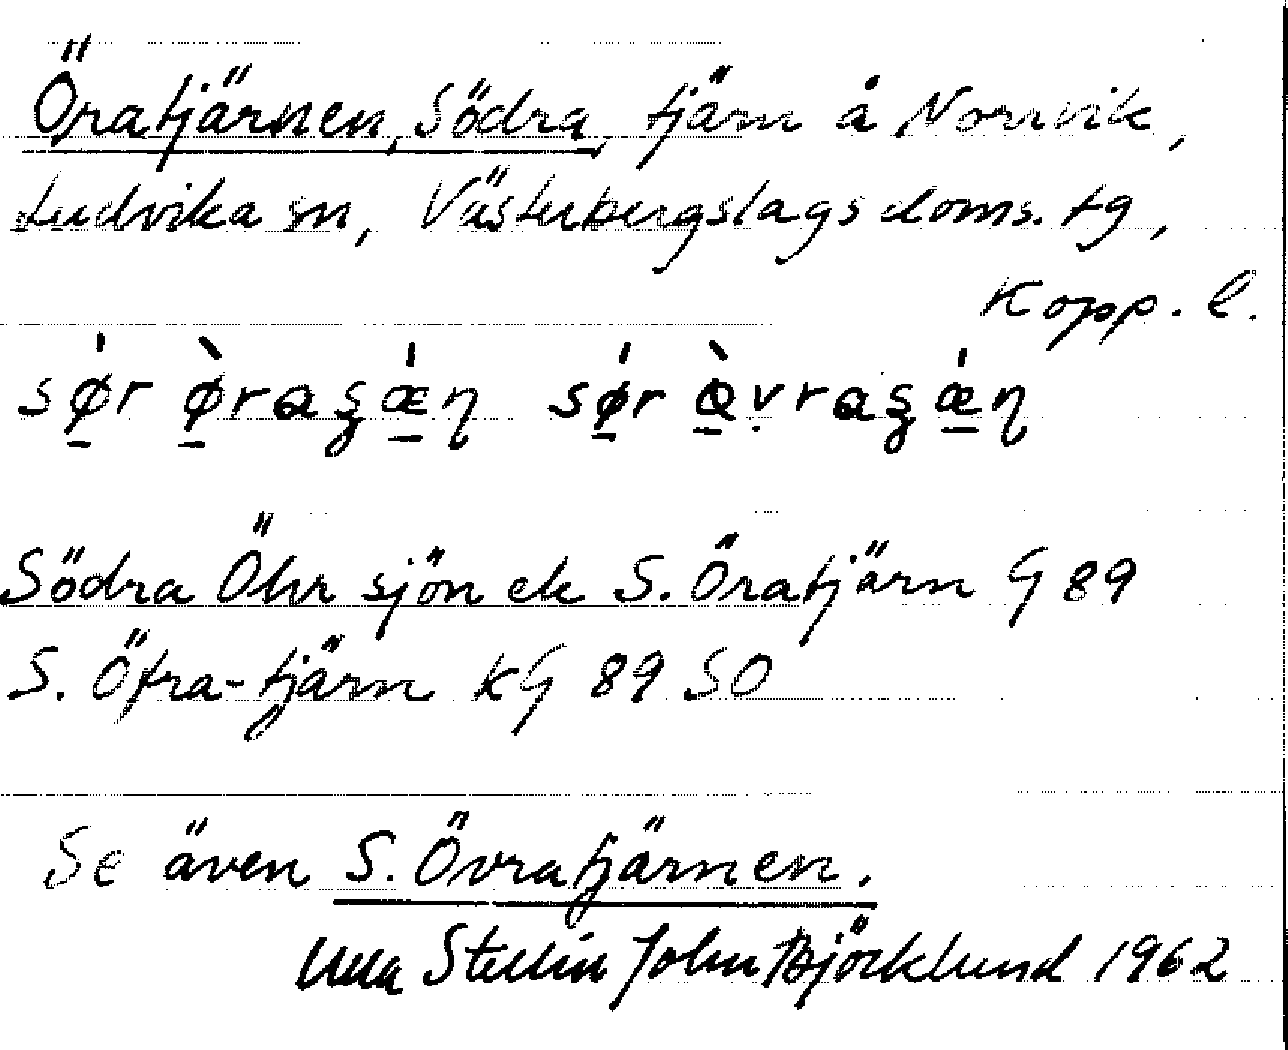 Öratjärnen, Södra, tjärn å Norrvik,
Ludvika sn, Västerbergslags doms. tg,
Kopp. l.
Södra Öhrsjön ek S. Öratjärn G 89
S. Öfra-tjärn KG 89 SO
Se även S. Övratjärnen.
Ulla Stellin John Björklund 1962